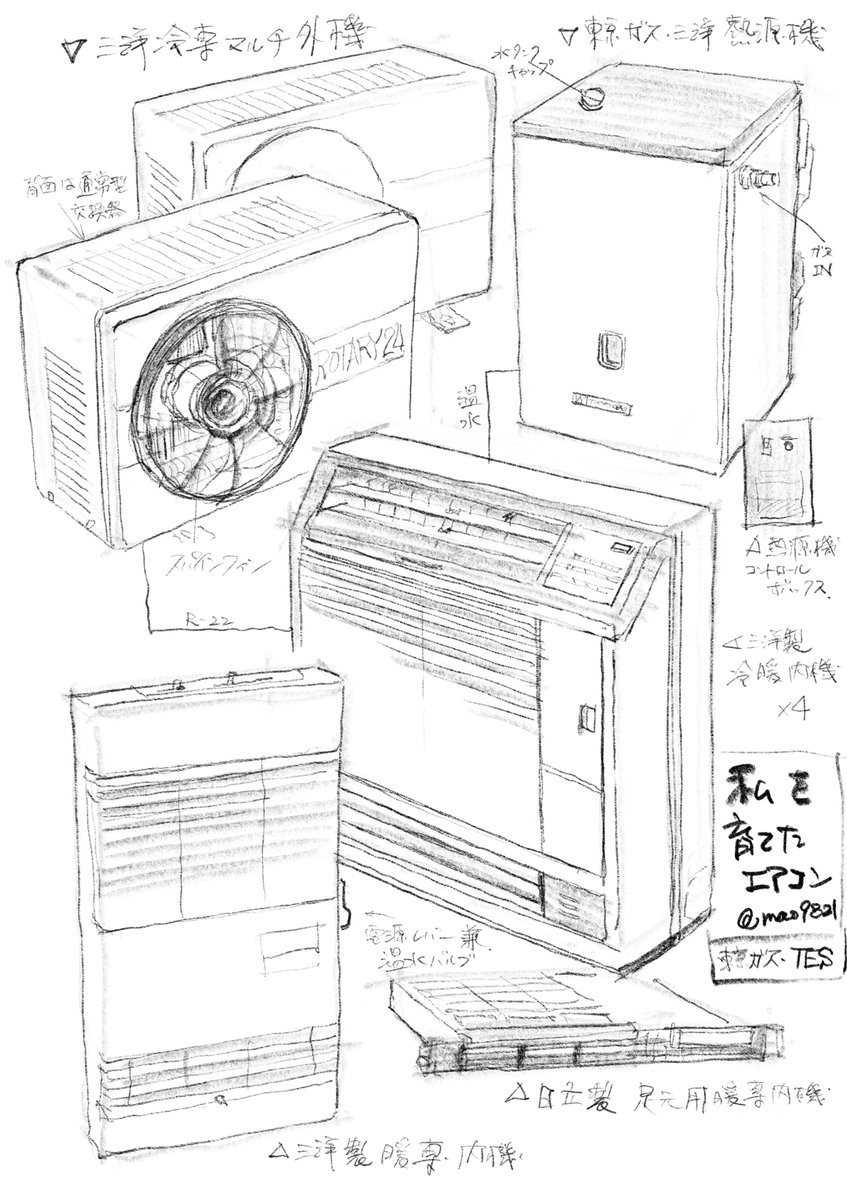 ▽三洋冷専マルチ外機
▽東京ガス・三洋 熱源機
水タンク
キャップ
背面は通常型
交換器
ガス
IN
ROTARY24
温
水
スパインフィン
R-22
△熱源機
コントロール
ボックス
◁三洋製
冷暖内機
×4
私を
育てた
エアコン
@mao9821
東京ガス・TES
電源レバー兼
温水バルブ
△日立製 足元用暖専内機
△三洋製暖専内機